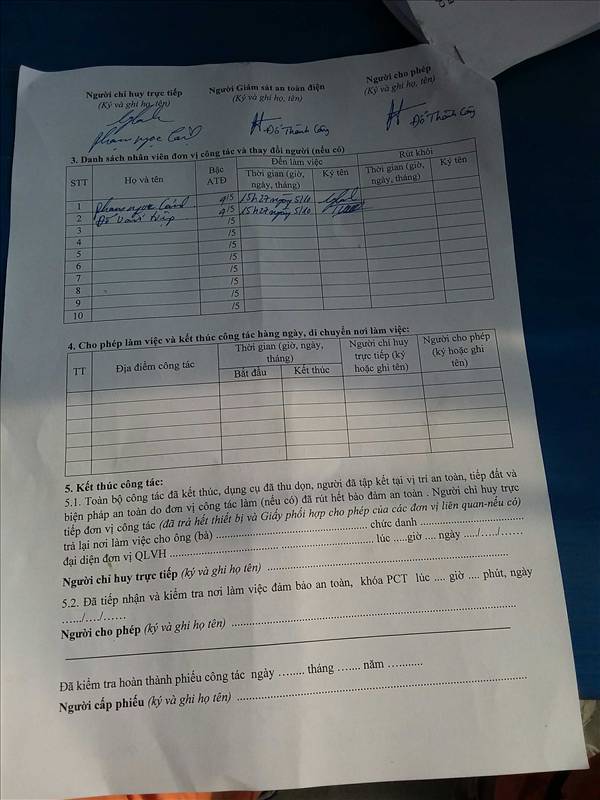 Người chỉ huy trực tiếp Người Giám sát an toàn điện Người cho phép
(Ký và ghi họ, tên) (Ký và ghi họ, tên) (Ký và ghi họ, tên)
Phạm ngọc Cảnh Đỗ Thành Công Đỗ Thành Công
3. Danh sách nhân viên đơn vị công tác và thay đổi người (nếu có)
STT Họ và tên Bậc ATĐ Đến làm việc Rút khỏi
Thời gian (giờ, ngày, tháng) Ký tên Thời gian (giờ, ngày, tháng) Ký tên
1 Phạm ngọc Cảnh 4/5 15h27 ngày 5/10
2 Đỗ Văn 4/5 15h27 ngày 5/10
3 /5
4 /5
5 /5
6 /5
7 /5
8 /5
9 /5
10 /5
4. Cho phép làm việc và kết thúc công tác hàng ngày, di chuyển nơi làm việc:
TT Địa điểm công tác Thời gian (giờ, ngày, tháng) Người chỉ huy trực tiếp (ký hoặc ghi tên) Người cho phép (ký hoặc ghi tên)
Bắt đầu Kết thúc
5. Kết thúc công tác:
5.1. Toàn bộ công tác đã kết thúc, dụng cụ đã thu dọn, người đã tập kết tại vị trí an toàn, tiếp đất và
biện pháp an toàn do đơn vị công tác làm (nếu có) đã rút hết bảo đảm an toàn . Người chỉ huy trực
tiếp đơn vị công tác (đã trả hết thiết bị và Giấy phối hợp cho phép của các đơn vị liên quan-nếu có)
trả lại nơi làm việc cho ông (bà) ........ chức danh ........
đại diện đơn vị QLVH ........ lúc .....giờ .... ngày ...../...../......
Người chỉ huy trực tiếp (ký và ghi họ tên) ........
5.2. Đã tiếp nhận và kiểm tra nơi làm việc đảm bảo an toàn, khóa PCT lúc .... giờ .... phút, ngày
....../..../......
Người cho phép (ký và ghi họ tên) ........
Đã kiểm tra hoàn thành phiếu công tác ngày ........ tháng ....... năm ...........
Người cấp phiếu (ký và ghi họ tên) ........